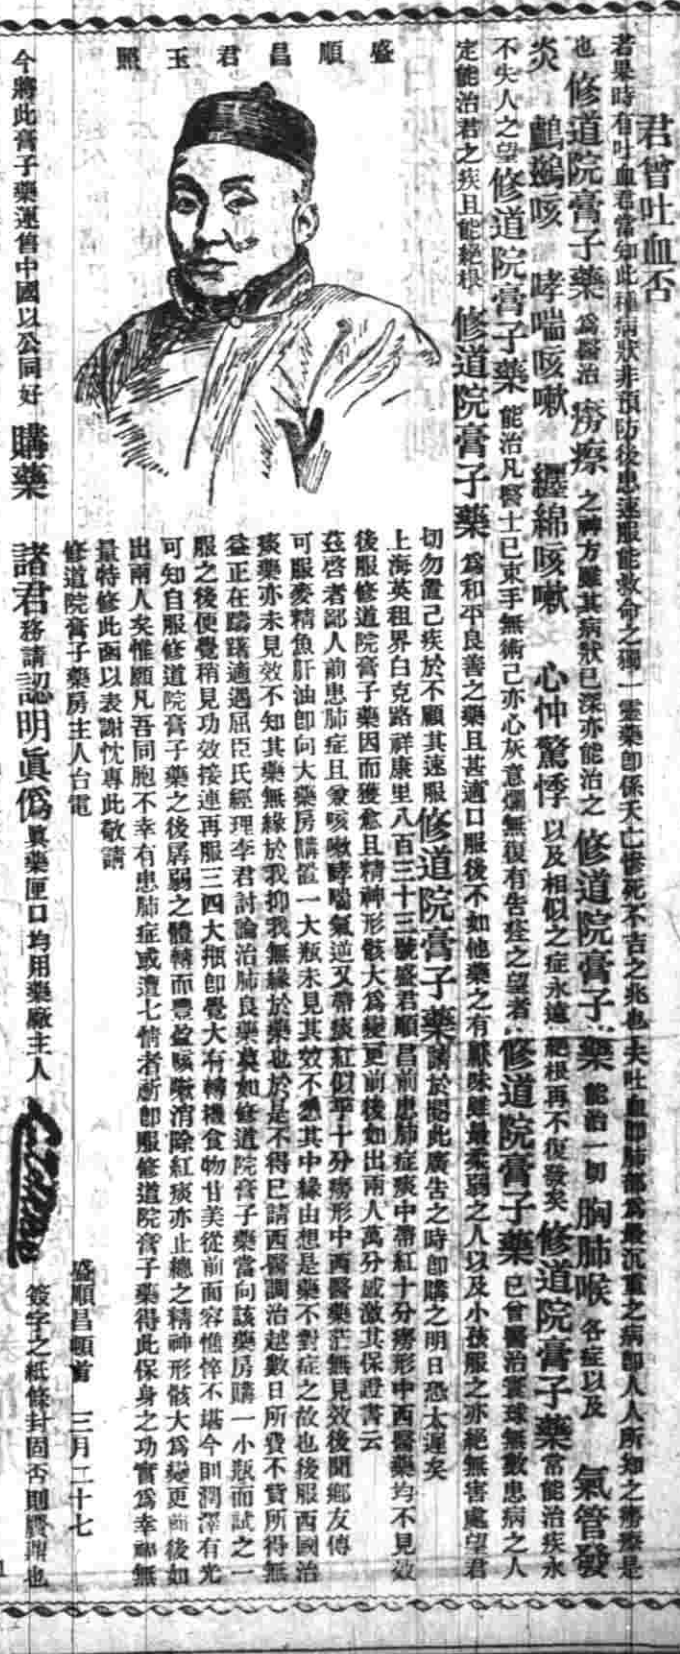 君曾吐血否
若果時有吐血君當知此種病狀非預防後患速服能救命之獨一靈藥卽係夭亡慘死不吉之兆也夫吐血卽肺部爲最沉重之病卽人人所知之癆瘵是
也修道院膏子藥爲醫治癆瘵之神方雖其病狀已深亦能治之修道院膏子藥能治一切胸肺喉各症以及氣管發
炎鸕鷀咳哮喘咳嗽纏綿咳嗽心忡驚悸以及相似之症永遠絕根再不復發矣修道院膏子藥常能治疾永
不失人之望修道院膏子藥能治凡醫士已束手無術己亦心灰意爛無復有告痊之望者修道院膏子藥已曾醫治寰球無數患病之人
定能治君之疾且能絕根修道院膏子藥爲和平良善之藥且甚適口服後不如他藥之有厭味雖最柔弱之人以及小孩服之亦絕無害處望君
切勿置己疾於不顧其速服修道院膏子藥請於閱此廣告之時卽購之明日恐太遲矣
盛順昌君玉照
上海英租界白克路祥康里八百三十三號盛君順昌前患肺症痰中帶紅十分癆形中西醫藥均不見效
後服修道院膏子藥因而獲愈且精神形骸大爲變更前後如出兩人萬分感激其保證書云
茲啓者鄙人前患肺症且兼咳嗽哮喘氣逆又帶痰紅似乎十分癆形中西醫藥茫無見效後聞鄉友傳
可服麥精魚肝油卽向大藥房購置一大瓶未見其效不悉其中緣由想是藥不對症之故也後服西國治
痰藥亦未見效不知其藥無緣於我抑我無緣於藥也於是不得已請西醫調治越數日所費不貲所得無
益正在躊躇適遇屈臣氏經理李君討論治肺良藥莫如修道院膏子藥當向該藥房購一小瓶而試之一
服之後便覺稍見功效接連再服三四大瓶卽覺大有轉機食物甘美從前面容憔悴不堪今則潤澤有光
可知自服修道院膏子藥之後孱弱之體轉而豐盈咳嗽消除紅痰亦止總之精神形骸大爲變更前後如
出兩人矣惟願凡吾同胞不幸有患肺症或遭七情者卽服修道院膏子藥得此保身之功實爲幸福無
量特修此函以表謝忱專此敬請
修道院膏子藥房主人台電
盛順昌頓首 三月二十七
今將此膏子藥運售中國以公同好購藥諸君務請認明眞僞眞藥匣口均用藥廠主人簽字之紙條封固否則贋鼎也